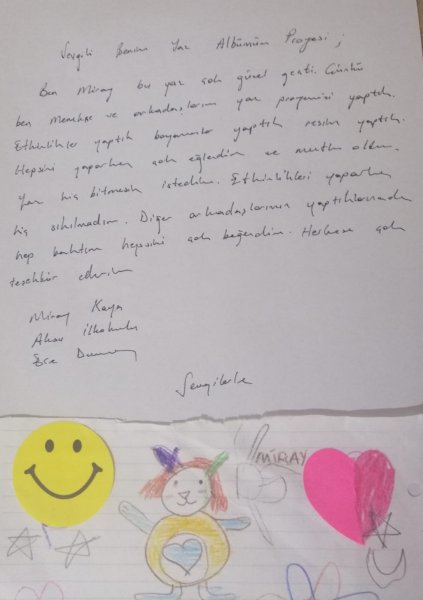 Sevgili Benim Yaz Albümüm Projesi ;
Ben Miray bu yaz çok güzel geçti. Çünkü
ben Menekşe ve arkadaşlarım yaz projemizi yaptık.
Etkinlikler yaptık boyamalar yaptık resim yaptık.
Hepsini yaparken çok eğlendim ve mutlu oldum.
Yaz hiç bitmesin istedim. Etkinlikleri yaparken
hiç sıkılmadım. Diğer arkadaşlarımın yaptıklarınada
hep baktım hepsini çok beğendim. Herkese çok
teşekkür ederim
Miray Kaya
İlkokulu
Sevgilerle
MİRAY